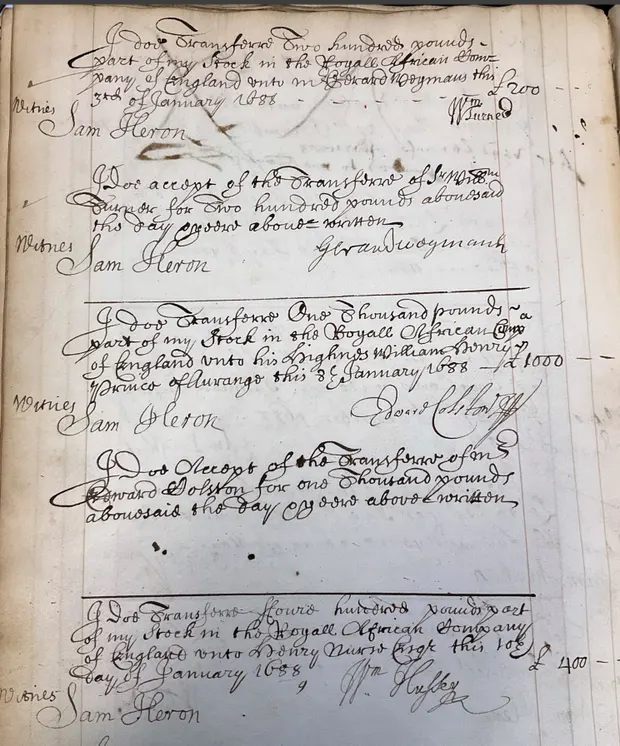 I doe Transferre Two hundred pounds
part of my Stock in the Royall African Com=
pany of England vnto mr Gerard Weymans this
3rd of January 1688 - - - - - £ 200 -
Witnes Wm Turner
Sam Heron
I Doe accept of the Transferre of Sr Willm
Turner for Two hundred pounds abouesaid
the day & yeere aboue written
Witnes
Sam Heron
I doe Transferre One Thousand pounds a
part of my Stock in the Royall African Comp
of England vnto his Highnes William Henry
Prince of Aurange this January 1688 - £ 1000 -
Witnes Edward Colston
Sam Heron
I Doe Accept of the Transferre of mr
Edward Colston for one Thousand pounds
abouesaid the day & yeere aboue written
I Doe Transferre Foure hundred pounds part
of my Stock in the Royall African Company
of England vnto Henry Nurse Esqr this 10th
day of January 1688 £ 400 -
Witnes Wm Hussey
Sam Heron